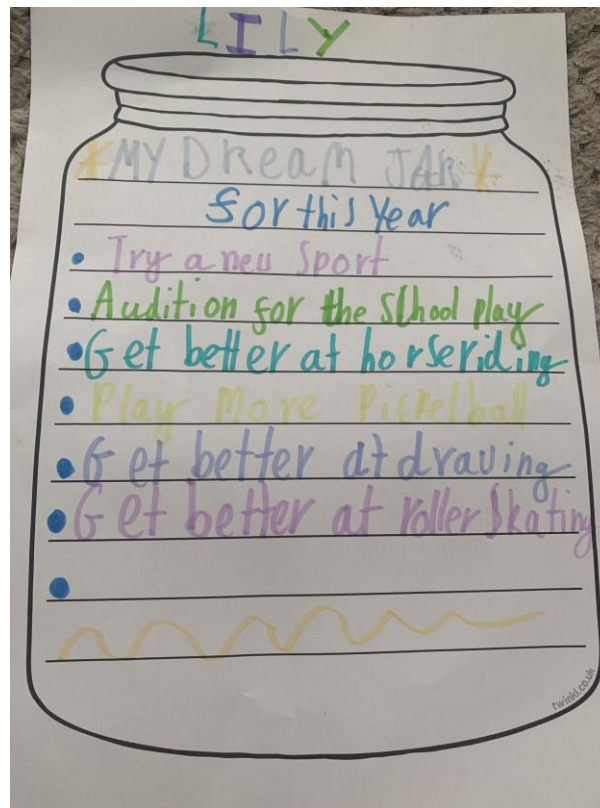 LILY
*MY DReaM JAR*
for this Year
• Try a neu Sport
• Audition for the School play
• Get better at horseriding
• Play More Pickelball
• Get better at drauing
• Get better at roller Skating
•
twinkl.co.uk